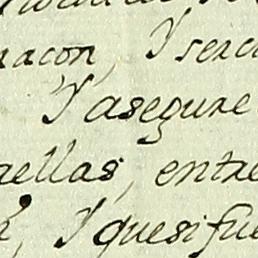 nacon, Y serc
Y asegure
aellas, entre
Y quesi fue